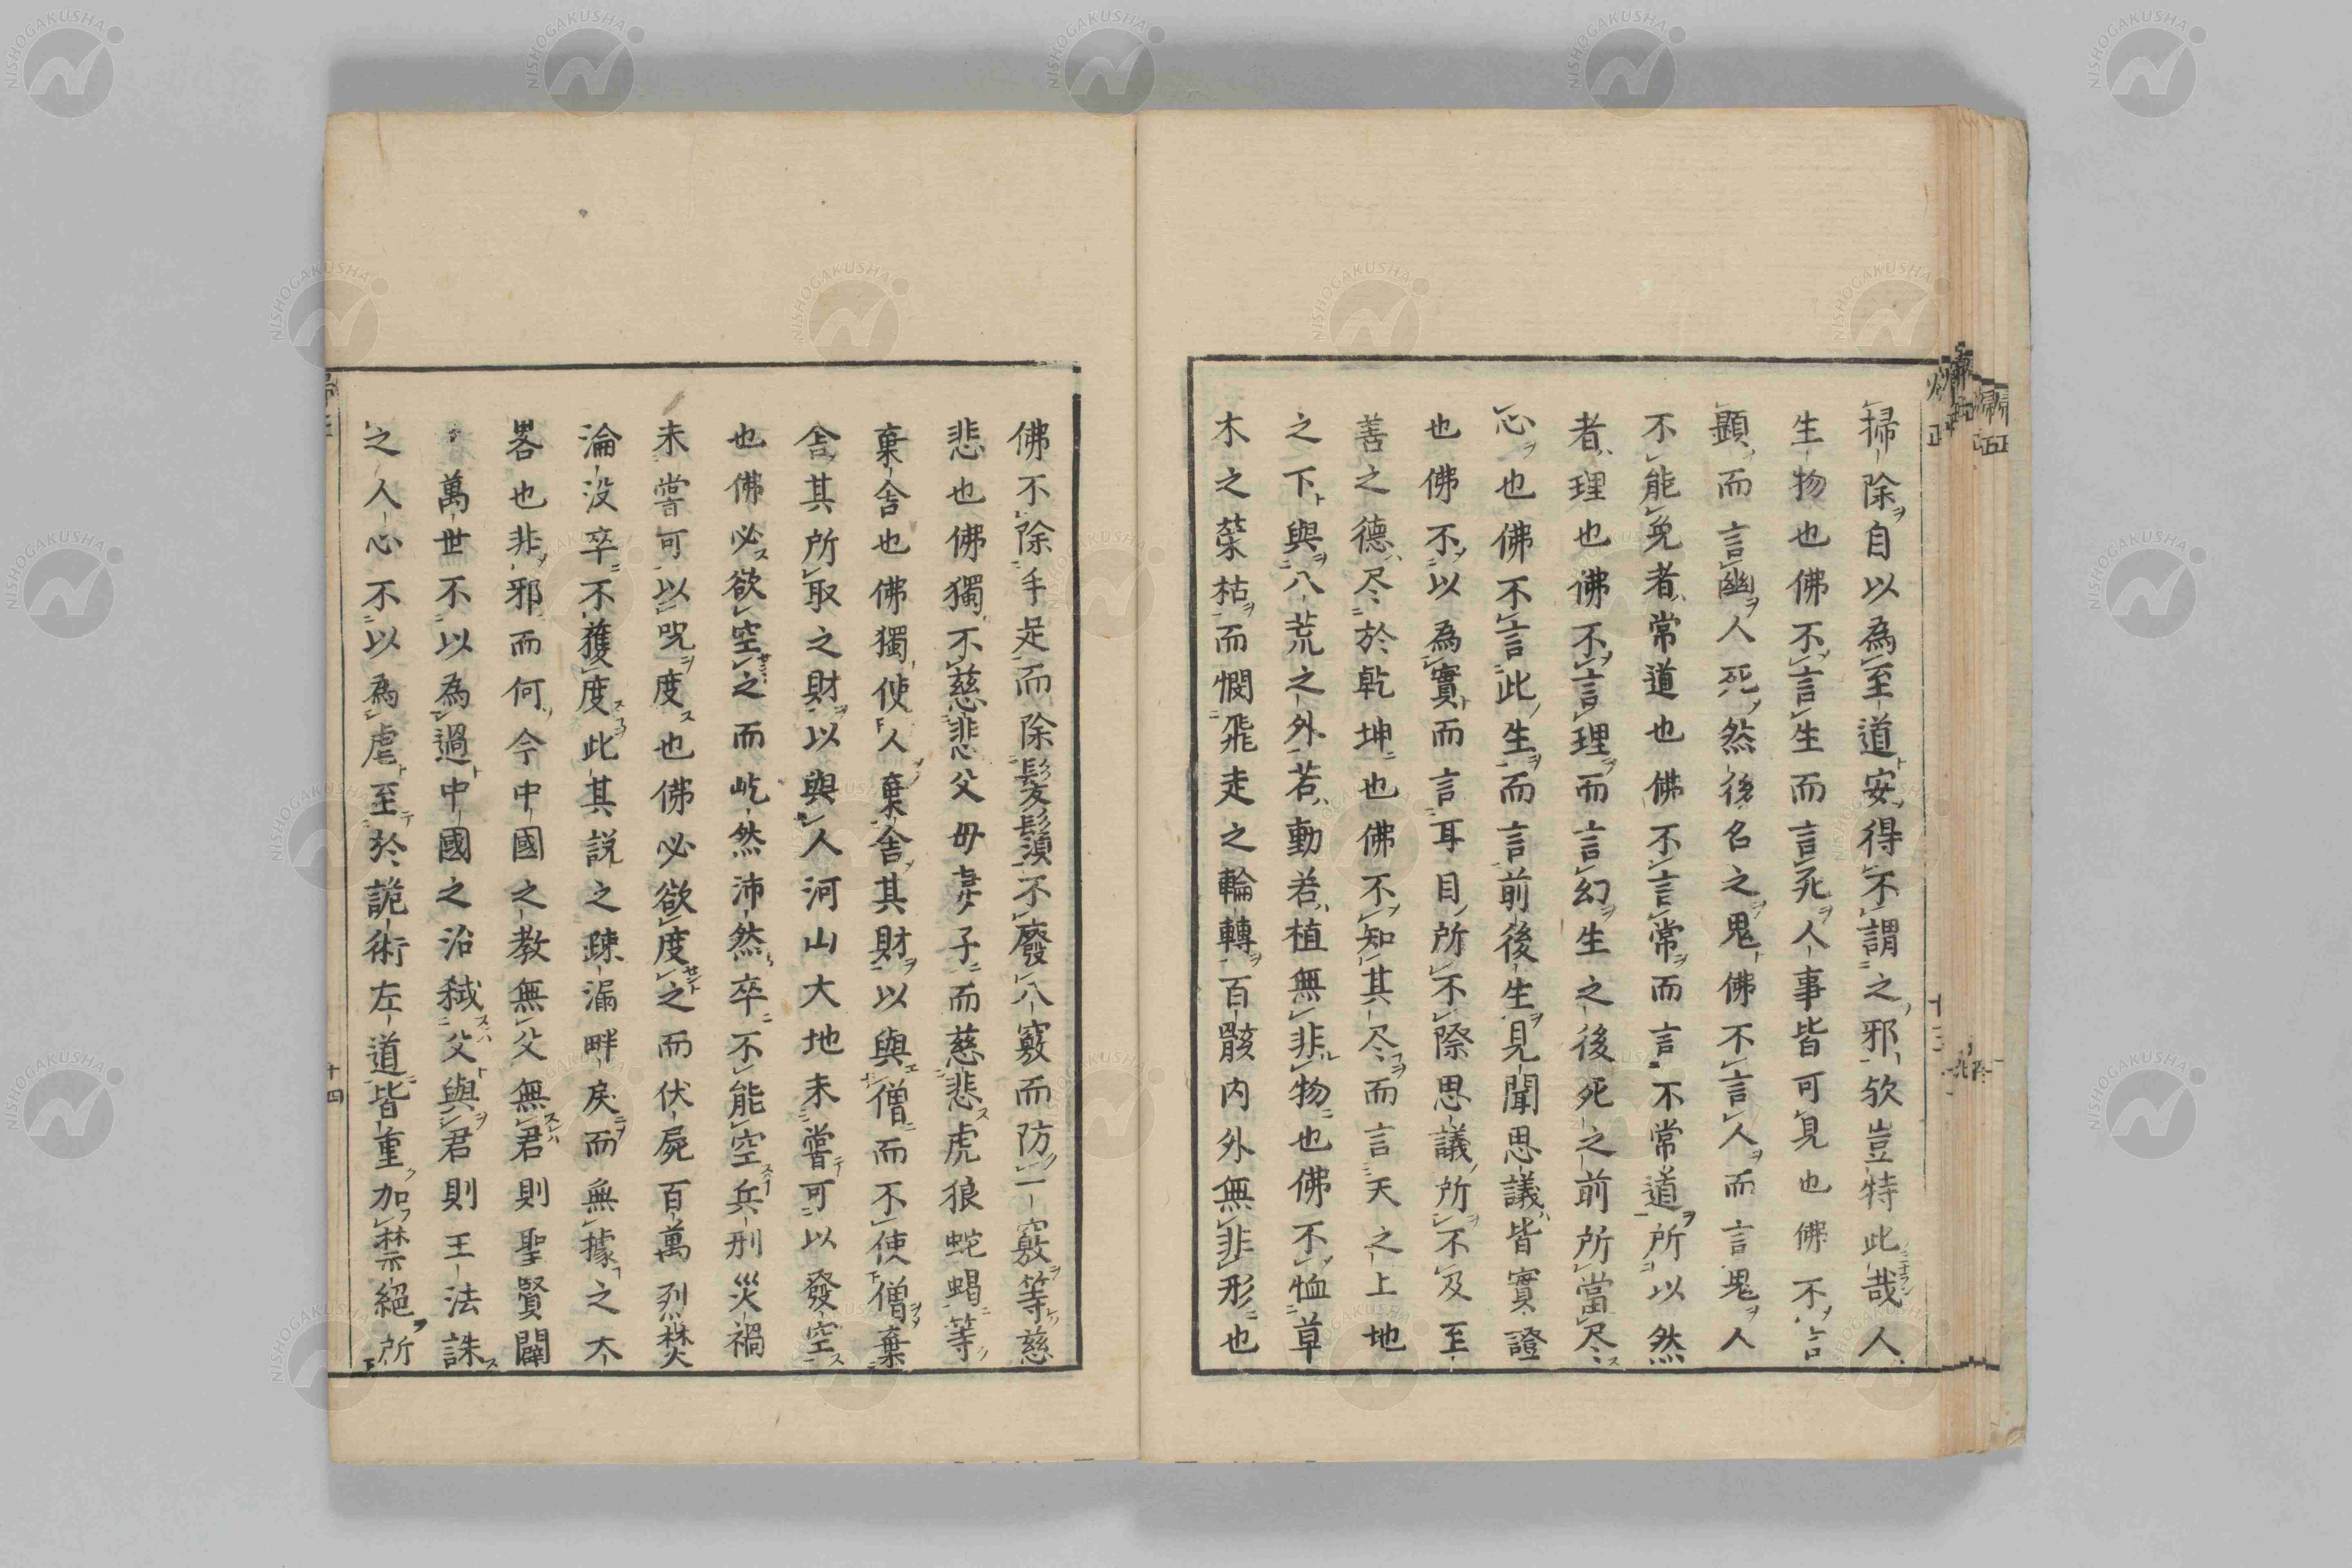 掃除自以為至道安得不謂之邪欤豈特此哉人
生物也佛不言生而言死人事皆可見也佛不言
顯而言幽人死然後名之鬼佛不言人而言鬼人
不能免者常道也佛不言常而言不常道所以然
者理也佛不言理而言幻生之後死之前所當尽
心也佛不言此生而言前後生見聞思議皆實證
也佛不以為實而言耳目所不際思議所不及至
善之德尽於乾坤也佛不知其尽而言天之上地
之下與八荒之外若動若植無非物也佛不恤草
木之菜枯而憫飛走之輪轉百骸内外無非形也
佛不除手足而除髮鬚不廢八竅而防一竅等慈
悲也佛獨不慈悲父母妻子而慈悲虎狼蛇蝎等
棄舍也佛獨使人棄舍其財以與僧而不使僧棄
舍其所取之財以與人河山大地未嘗可以發空
也佛必欲空之而屹然沛然卒不能空兵刑災禍
未嘗可以咒度也佛必欲度之而伏屍百萬烈焚
淪没卒不獲度此其説之疎漏畔戾而無據之大
畧也非邪而何今中國之教無父無君則聖賢闢
萬世不以為過中國之治弑父與君則王法誅
之人心不以為虐至於詭術左道皆重加禁絕所
十四
NISHOGAKUSHA